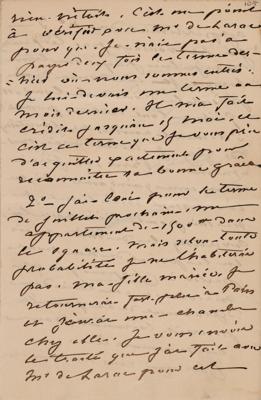 rien
à vérifier avec Mr de Larac
pour que je n'aie pas à
payer deux fois le terme der-
nier où nous sommes entrés.
Je lui devais un terme au
mois dernier. Il m'a fait
crédit jusqu'à ce mois, et
c'est ce terme que je vous prie
d'acquitter
reconnaître sa bonne grâce.
2° J'ai loué pour le terme
de juillet prochain un
appartement de 1500 f dans
le square. Mais selon toute
probabilité je ne l'habiterai
pas. Ma fille mariée, je
retournerai à Paris
et j'aurai une chambre
chez elle. Je vous envoie
le traité que j'ai fait avec
Mr de Larac pour cet